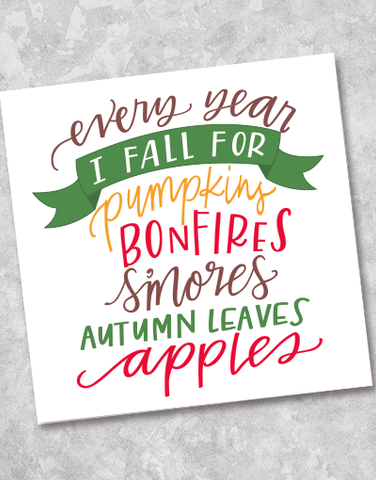 every year
I FALL FOR
pumpkins
BONFIRES
s'mores
AUTUMN LEAVES
apples